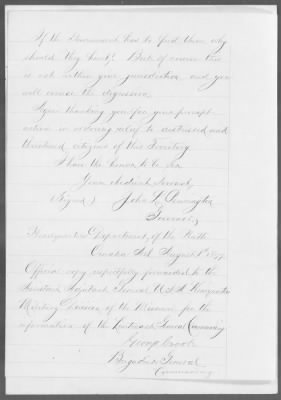 If the Government has to feed them why
should they hunt? But of course this
is not within your jurisdiction and you
will excuse the digression.
Again thanking you for your prompt
action in ordering relief to distressed and
threatened citizens of this Territory
I have the honor to be
Your obedient servant
(Signed) John L. Pennington
Governor
Headquarters Department of the Platte
Omaha Neb August 1st 1877
Official copy respectfully forwarded to the
Assistant Adjutant General U.S.A. Headquarters
Military Division of the Missouri for the
information of the Lieutenant General Commanding
George Crook
Brigadier General
Commanding